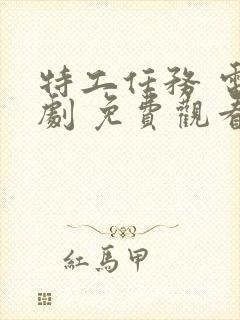 特工任務 電
劇 免費觀看
紅馬甲